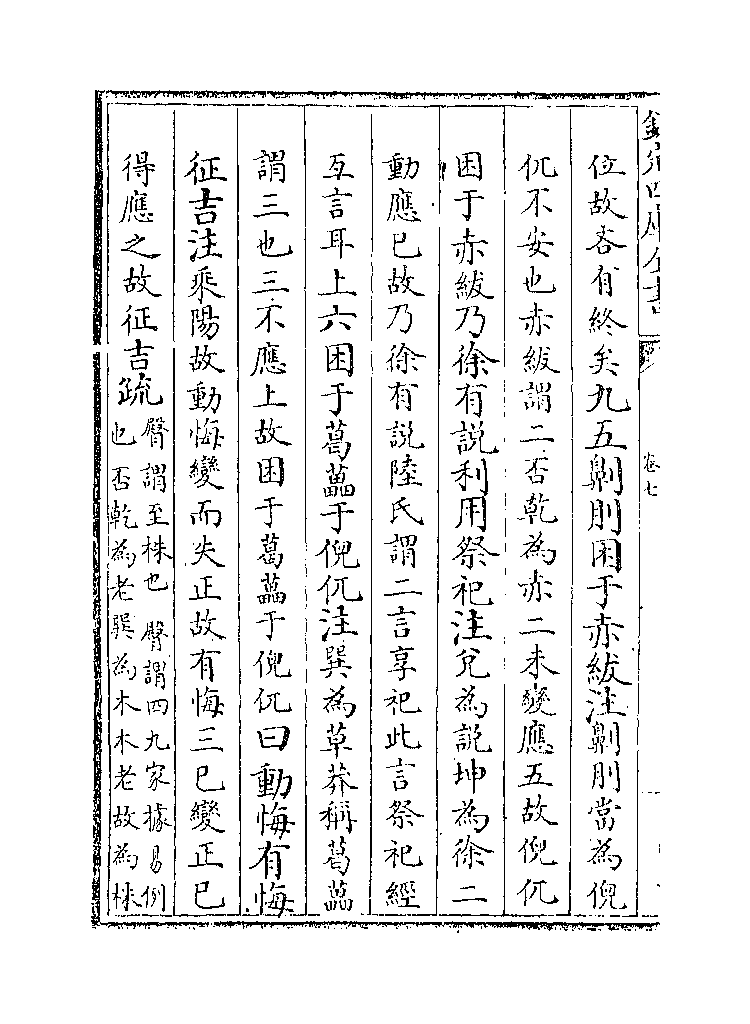 欽定四庫全書
卷七
位故吝有終矣九五劓刖困于赤紱注劓刖當為倪
㐳不安也赤紱謂二否乾為赤二未變應五故倪㐳
困于赤紱乃徐有說利用祭祀注兌為說坤為徐二
動應已故乃徐有說陸氏謂二言享祀此言祭祀經
互言耳上六困于葛藟于倪㐳注巽為草莽稱葛藟
謂三也三不應上故困于葛藟于倪㐳曰動悔有悔
征吉注乘陽故動悔變而失正故有悔三已變正已
得應之故征吉疏臀謂至株也 臀謂四九家據易例
也否乾為老巽為木木老故為株